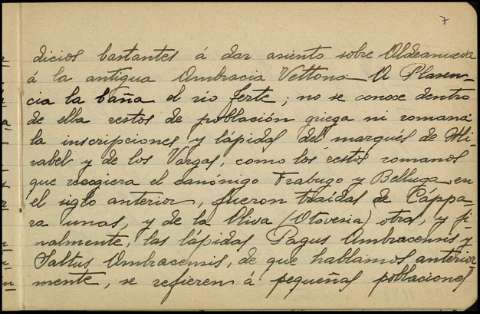 7
dicios bastantes á dar asiento sobre Aldeanueva
á la antigua Ambracia Vettona. A Plasen-
cia la baña el rio Jerte; no se conoce dentro
de ella restos de población griega ni romana
la inscripciones y lápidas del marqués de Mi-
rabel y de los Vargas, como los restos romanos
que recogiera el canónigo Trabugo y Belluga en
el siglo anterior, fueron traidas de Cáppa-
ra unas, y de la Oliva (Otovesia) otras, y fi-
nalmente, las lápidas Pagus Ambracensis y
Saltus Ambracensis, de que hablamos anterior
mente, se refieren á pequeñas poblaciones